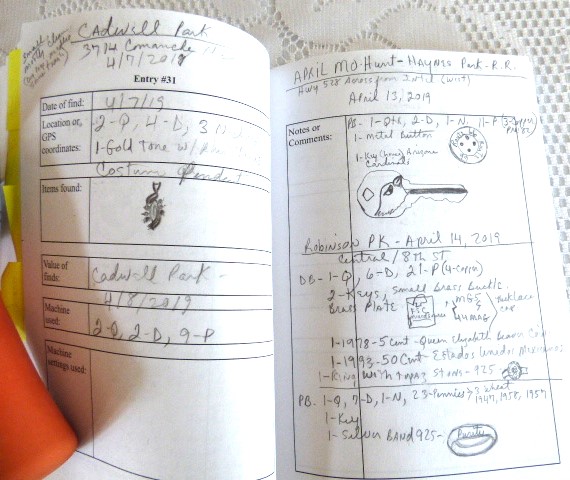 Cadwell Park
3714 Comanche
4/7/2019
Entry #31
Date of find: 4/7/19
Location or GPS coordinates: 2-P, 4-D, 3 N
1-Gold Tone w/
Costume Pendent
Items found:
Value of finds: Cadwell Park -
4/8/2019
Machine used: 2-Q, 2-D, 9-P
Machine settings used:
APRIL MO. Hunt - HAYNES Park - R.R.
Hwy 528 Across from Intel (West)
April 13, 2019
Notes or Comments:
PB- 1-Qtr, 2-D, 1-N, 11-P (3-Copper Pre 82)
1- metal Button
1-Key (Home) Arizona Cardinals
Robinson PK - April 14, 2019
Central / 8th ST
DB- 1-Q, 6-D, 21-P (4-Copper)
2-Keys, Small Brass Buckle
Brass Plate
44 MAG
1-1978-5 Cent - Queen Elizabeth Beaver
1-1993-50 Cent - Estados Unidos Mexicanos
1-Ring with Topaz Stone - 925
PB- 1-Q, 7-D, 1-N, 23-Pennies 3 Wheat 1947, 1958, 1957
1-Key
1-Silver BAND 925-
Purity